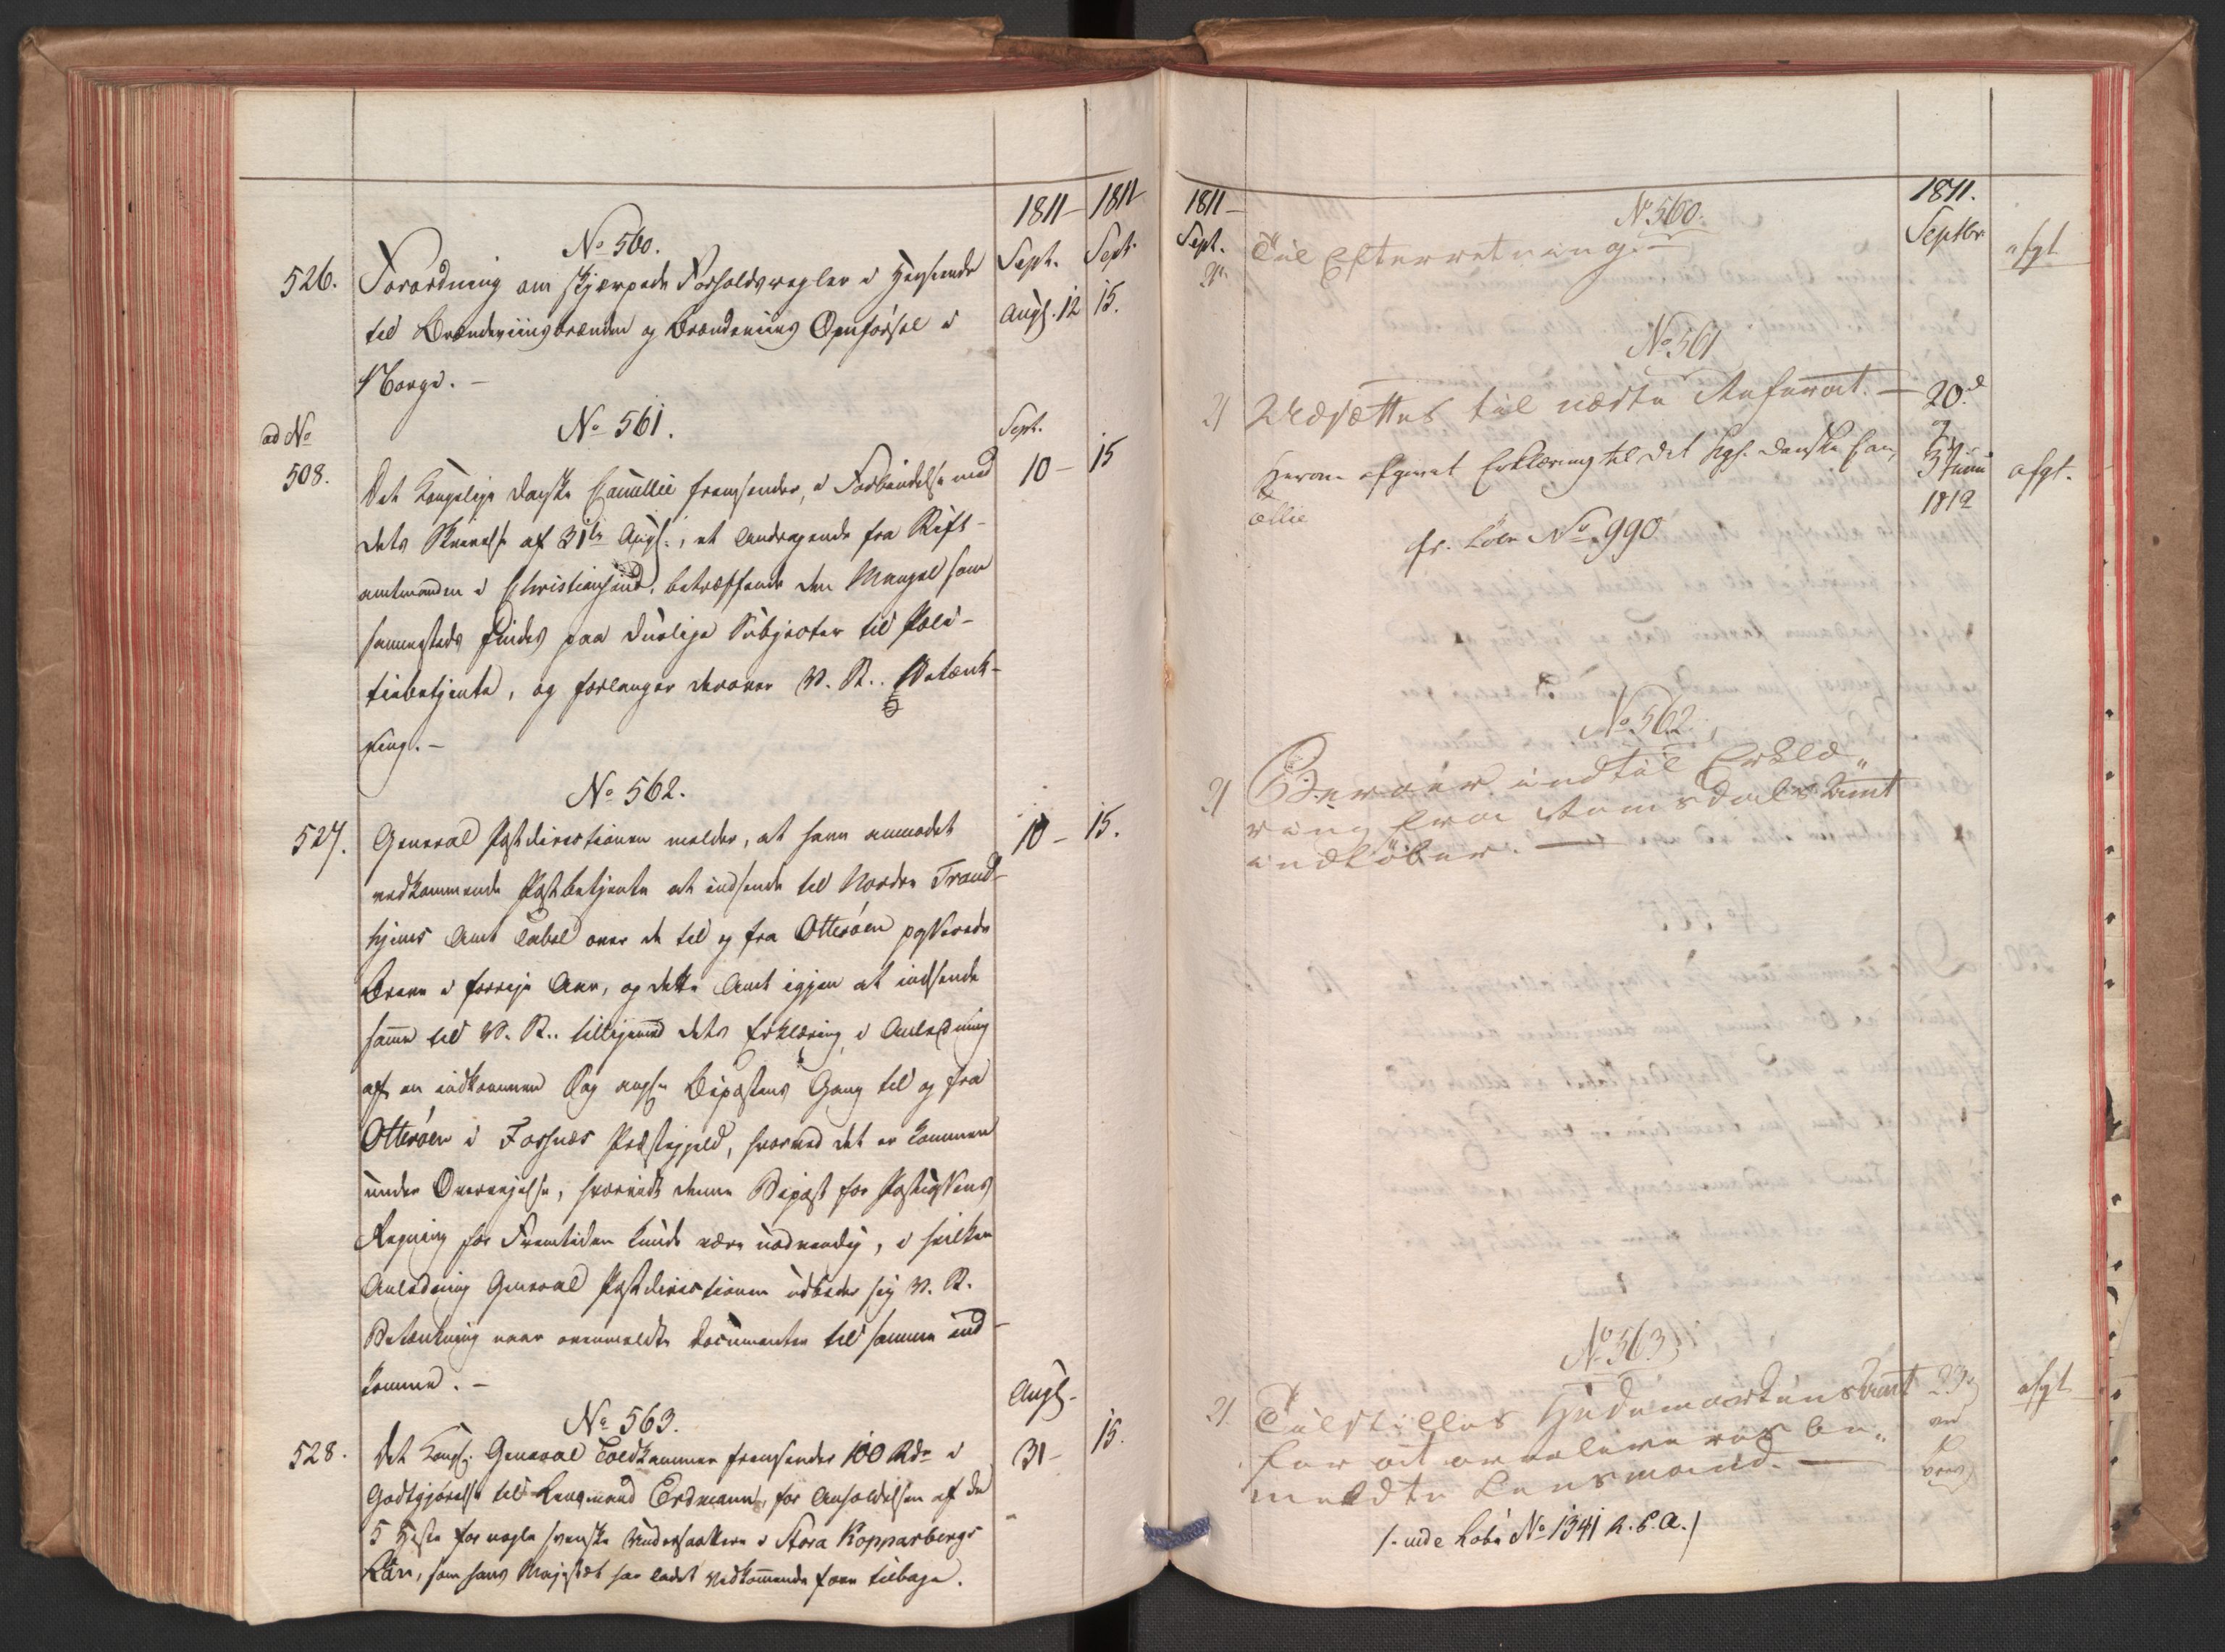 1811 - 1811
Sept. Sept
No 560.
526. Forordning om skjærpede Forholdsregler i Henseende
til Brændeviinsbrænden og Brændeviins Opførsel i Augs. 12 15.
Norge. -
ad No
508.
No 561. Sept.
Det Kongelige danske Cancellie fremsender, i Forbindelse med 10 - 15
dets Skrivelse af 31te Augs., et Andragende fra Stift-
amtmanden i Christiansand, betræffende den Mangel som
sammesteds findes paa duelige Subjecter til Poli-
tiebetjente, og forlanger derover V. R.. Betænk-
ning. -
No 562.
527. General Postdirectionen melder, at have anmodet 10 - 15.
vedkommende Postbetjente at indsende til Nordre Trond-
hjems Amt Tabel over de til og fra Otterøen passerede
Breve i forrige Aar, og dette Amt igjen at indsende
samme til V. R.. tilligemed dets Erklæring i Anledning
af en indkommen Sag angs. Bipostens Gang til og fra
Otterøen i Fosnæs Præstegjeld, hvorved det er kommen
under Overveielse, hvorvidt denne Bipost for Postcassens
Regning for Fremtiden kunde være nødvendig, i hvilken
Anledning General Postdirectionen udbeder sig V. R.
Betænkning naar ovenmeldte Documenter til samme ind-
komme. -
No 563. Augs.
528. Det Kongl. General Toldkammer fremsender 100 Rdr i 31 - 15.
Godtgjørelse til Lensmand Erdmann, for Anholdelsen af de
5 Heste for nogle svenske Undersaatter i Stora Kopparbergs
Län, som hans Majestæt har ladet Vedkommende faae tilbage.
1811 - 1811.
Sept. Septbr.
No 560.
Til Efterretning. afgt
No 561
21 Udsættes til næste Referat. - 20d
Herom afgivet Erklæring til det kgl. danske Can-
cellie 3 Junii
1812 afgt.
fr. Lbr No 990
No 562.
21 Beroer indtil Erklæ„
ring fra Romsdals Amt
indløber. -
No 563.
21. Tilstilles Hedemarkens Amt 23 afgt
for at overleveres be„
meldte Lensmand. -
/. No 1341 R. C. A./